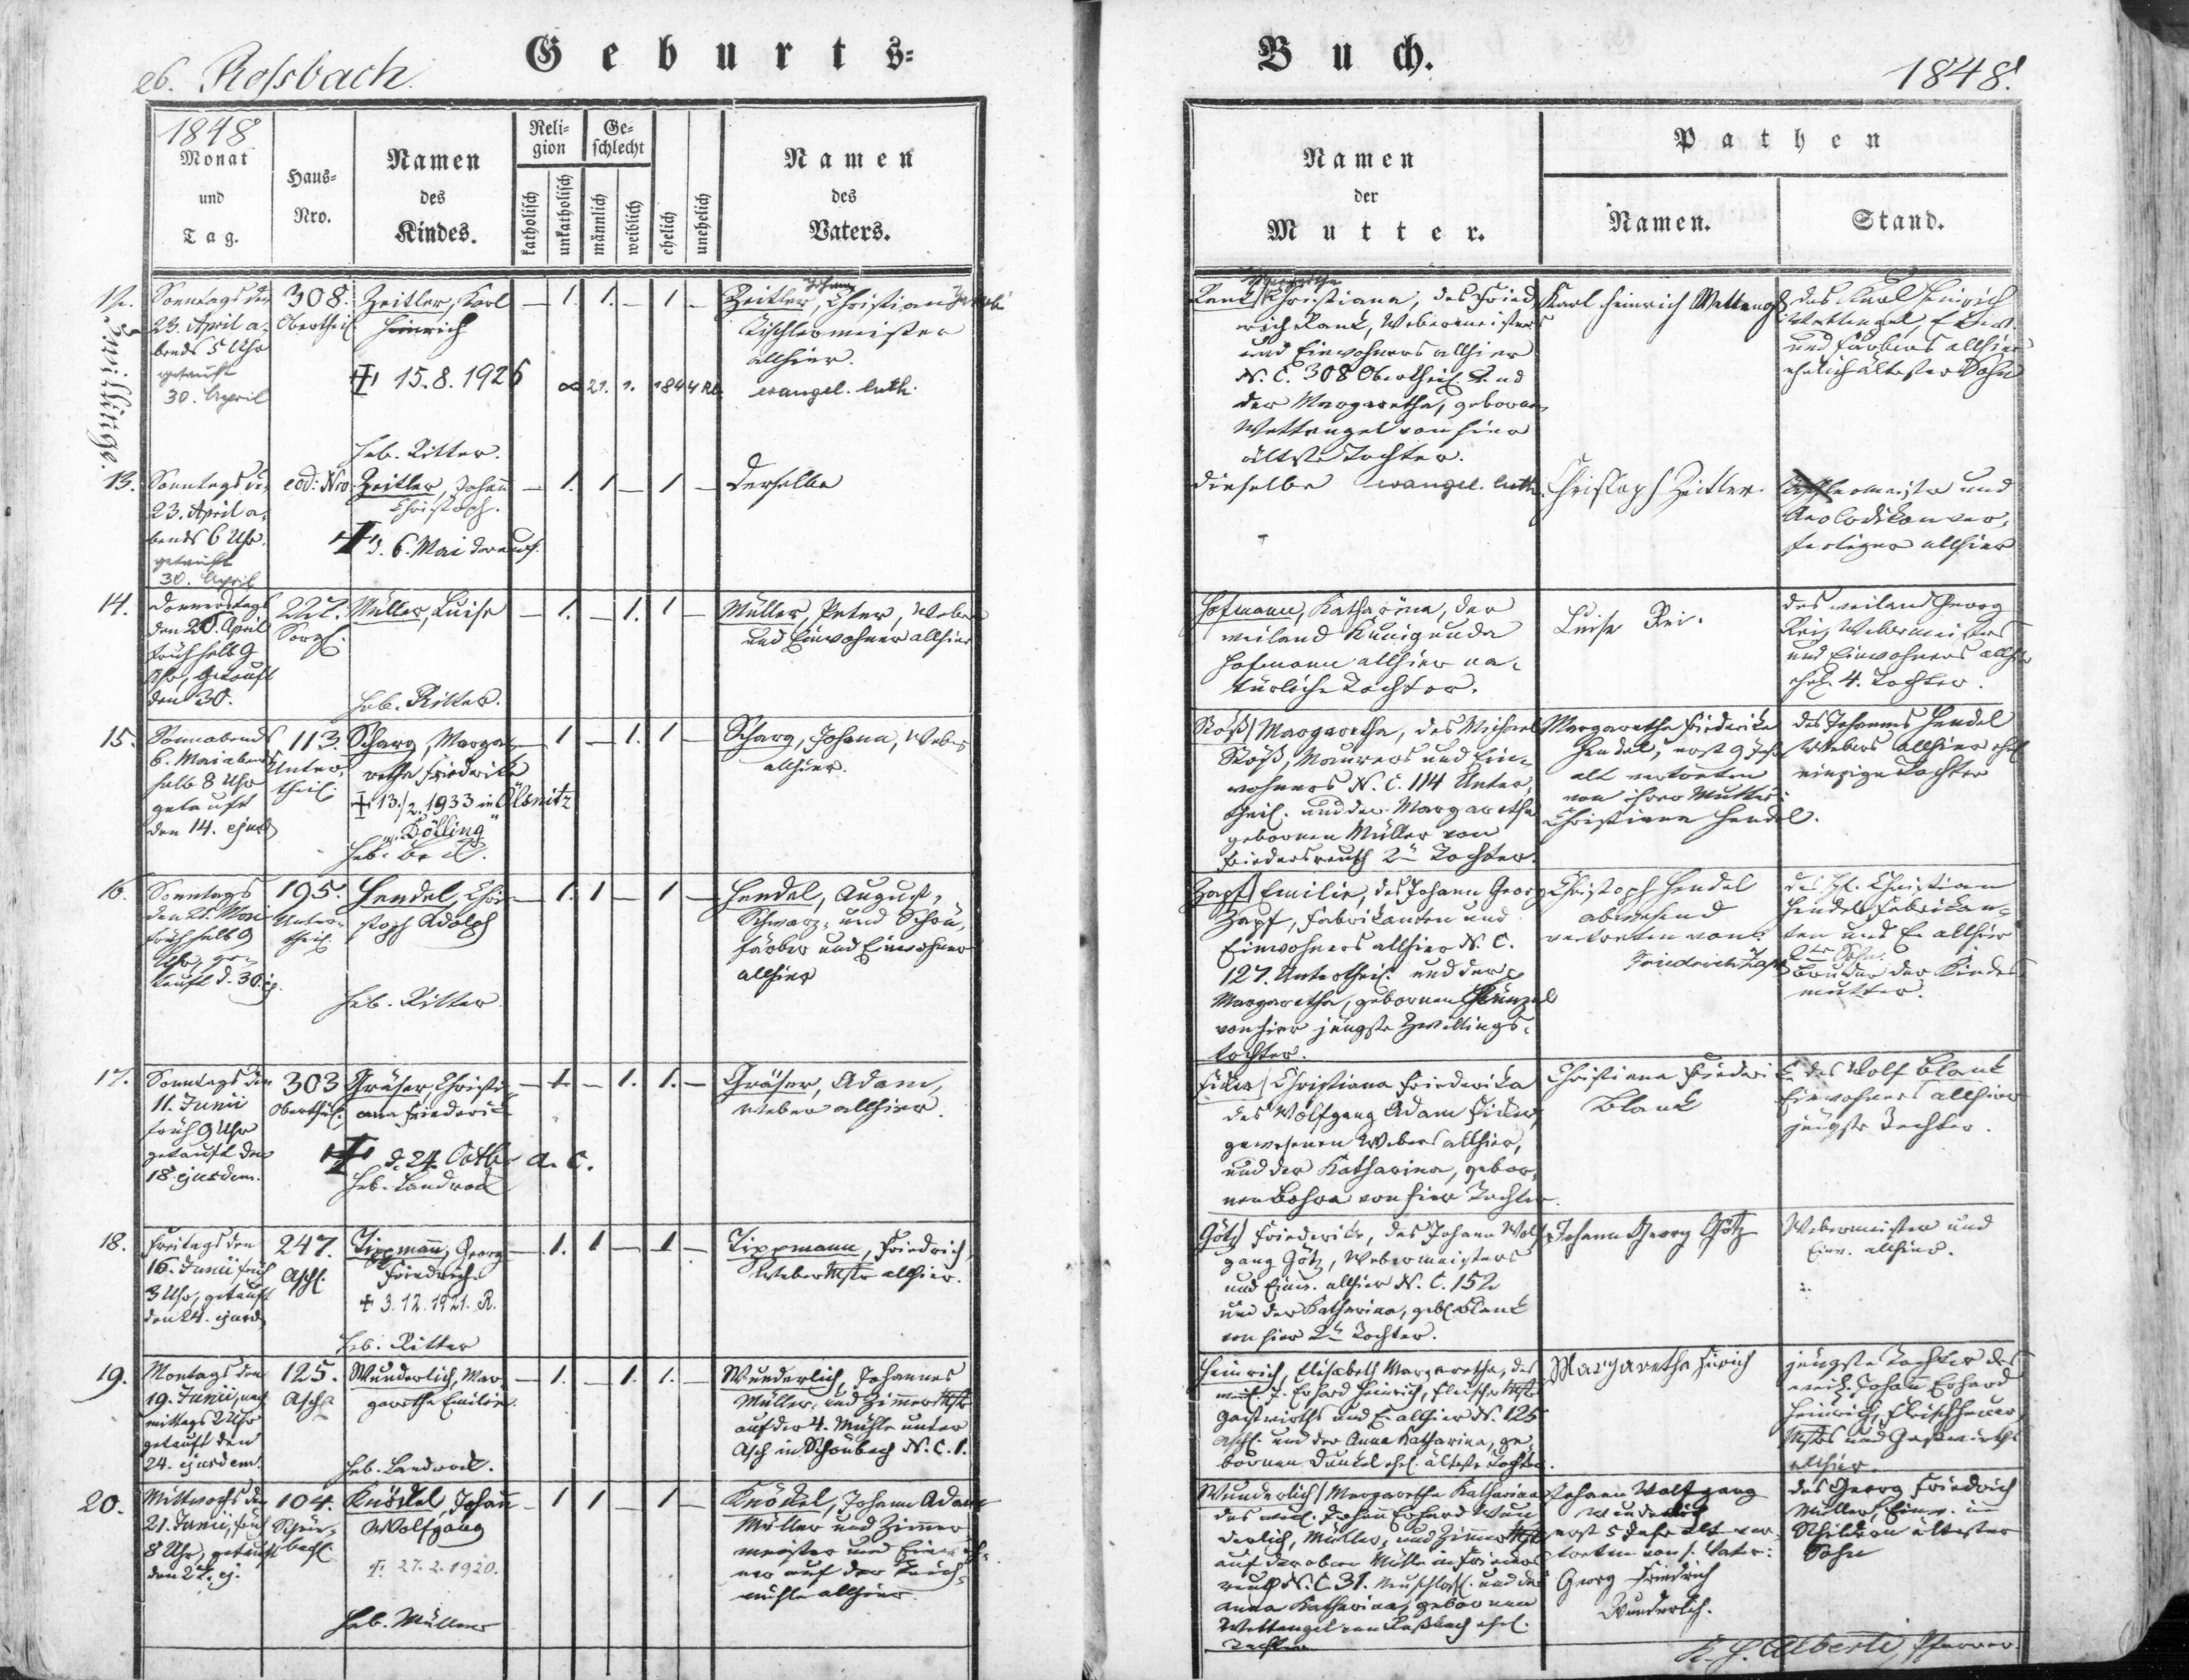 26. Roßbach.
Geburts=
Buch.
1848.
1848
Monat
und
Tag.
Haus=
Nro.
Namen
des
Kindes.
Reli=
gion
katholisch
unkatholisch
Ge=
schlecht
männlich
weiblich
ehelich
unehelich
Namen
des
Vaters.
Namen
der
Mutter.
Pathen
Namen.
Stand.
Zwillinge.
12.
Sonntags den
23. April a=
bends 5 Uhr
getauft
30. April
308.
Obertheil
Zeitler, Karl
Heinrich
15.8.1926
Heb. Ritter.
— 1. 1. — 1 —
∞ 21. 1. 1844
Johann
Zeitler, Christian
Tischlermeister
allhier.
evangel. luth.
Margaretha
Rank, Christiana, des Fried
rich Rank, Webermeisters
und Einwohners allhier
N. C. 308 Obertheil. und
der Margaretha, gebornen
Wettengel von hier
älteste Tochter.
Karl Heinrich Wettengel
des Karl Heinrich
Wettengel,
und Färbers allhier
ehelich ältester Sohn
13.
Sonntags den
23. April a=
bends 6 Uhr.
getauft
30. April
eod: Nro
Zeitler, Johann
Christoph.
d. 6. Mai
— 1. 1 — 1 —
Derselbe
Dieselbe evangel. luth.
Christoph Zeitler.
und
Aeolodikonver=
fertiger allhier
14.
Donnerstags
den 20. April
früh halb 9
Uhr, getauft
den 30.
227.
Sorg
Müller, Luise
Heb. Ritter.
— 1. — 1. 1 —
Müller, Peter, Weber
und Einwohner allhier
Hofmann, Katharina, der
weiland Kunigunda
Hofmann allhier na=
türliche Tochter.
Luise Rei.
des weiland Georg
Rei, Webermeisters
und Einwohners allhier
ehel. 4. Tochter.
15.
Sonnabends
6. Mai abends
halb 8 Uhr
getauft
den 14. ejusd
113.
Unter=
theil.
Scharg, Marga=
retha Friederike
13./2. 1933 in Ölsnitz
"Dölling"
— 1 — 1. 1 —
Scharg, Johann, Weber
allhier.
Stöß, Margaretha, des Michael
Stöß, Maurers und Ein=
wohners N. C. 114 Unter=
theil. und der Margaretha
gebornen Müller von
Friedersreuth 2te Tochter.
Margaretha Friederike
Hendel, erst 9 Jahr
alt vertreten
von ihrer Mutter:
Christiana Hendel.
des Johannes Hendel
Webers allhier ehel
einzige Tochter
16.
Sonntags
früh halb 9
Uhr, ge=
tauft d. 30. ej.
195.
Unter=
theil.
Hendel, Chri=
stoph Adolph
Heb. Ritter
— 1. 1 — 1 —
Hendel, August,
Schwarz= und Schön=
färber und Einwohner
allhier
Zapf, Emilie, des Johann Georg
Zapf, Fabrikanten und
Einwohners allhier N. C.
127. Untertheil. und der
Margaretha, gebornen Künzel
von hier jüngste Zwillings=
tochter.
Christoph Hendel
abwesend
vertreten von:
Friedrich Zapf
des Christian
Hendel Fabrikan=
ten und E. allhier
Sohn.
Bruder der Kindes
mutter.
17.
Sonntags den
11. Junii
früh 9 Uhr
getauft den
18 ejusdem.
303
Obertheil.
Gräser, Christi=
ana Friederik
d. 24. Octbr a. c.
Heb. Landrock
— 1. — 1. 1. —
Gräser, Adam,
Weber allhier.
Christiana Friederika
des Wolfgang Adam
gewesenen Webers allhier,
und der Katharina, gebor=
nen von hier Tochter
Christiana Friederi
Blank
des Wolf Blank
Einwohners allhier
jüngste Tochter.
18.
Freitags den
16. Junii früh
3 Uhr, getauft
den 24. ejusd
247.
Asch.
Tippmann, Georg
Friedrich.
+ 3. 12. 1921. R.
Heb. Ritter
— 1. 1 — 1 —
Tippmann, Friedrich,
Weber Mstr allhier.
Götz, Friederike, des Johann Wolf
gang Götz, Webermeisters
und Einw. allhier N. C. 152
und der Katharina, geb. Blank
von hier 2te Tochter.
Johann Georg Götz
Webermeister und
Einw. allhier.
19.
Montags den
19. Junii, nach
mittags 2 Uhr
getauft den
24. ejusdem.
125.
Asch
Wunderlich, Mar=
garetha Emilie
Heb. Landrock.
— 1. — 1. 1. —
Wunderlich, Johannes
Müller= und Zimmer Mstr
auf der 4. Mühle unter
Asch in Schönbach N. C. 1.
Heinrich, Elisabeth Margaretha, des
weil. J. Erhard Heinrich, Fleischer Mstr
Gastwirths und E. allhier N. 125
Asch. und der Anna Katharina, ge=
bornen Dunkel ehel. älteste Tochter.
Margaretha
jüngste Tochter des
weil. Johann Erhard
Heinrich, Fleischhauer
Mstrs und Gastwirths
allhier.
20.
Mittwochs den
21. Junii, früh
8 Uhr, getauft
den 27. ej.
104.
Knöckel, Johann
Wolfgang
27. 2. 1920.
Heb. Müller
— 1 1 — 1 —
Knöckel, Johann Adam
Müller und Zimmer
meister und Einwoh=
ner auf der Teich=
mühle allhier.
Wunderlich, Margaretha Katharina
des weil. Johann Erhard Wun
derlich, Müller= und Zimmer Mstr
auf der obern Mühle in Frieders
reuth N. C. 31. und der
Anna Katharina, gebornen
Wettengel von Roßbach ehel.
Tochter
Johann Wolfgang
Wunderlich
erst 5 Jahr alt ver=
treten von s. Vater:
Georg Friedrich
Wunderlich.
des Georg Friedrich
Müller, Einw. in
Schildern ältester
Sohn
Alberti, Pfarrer.